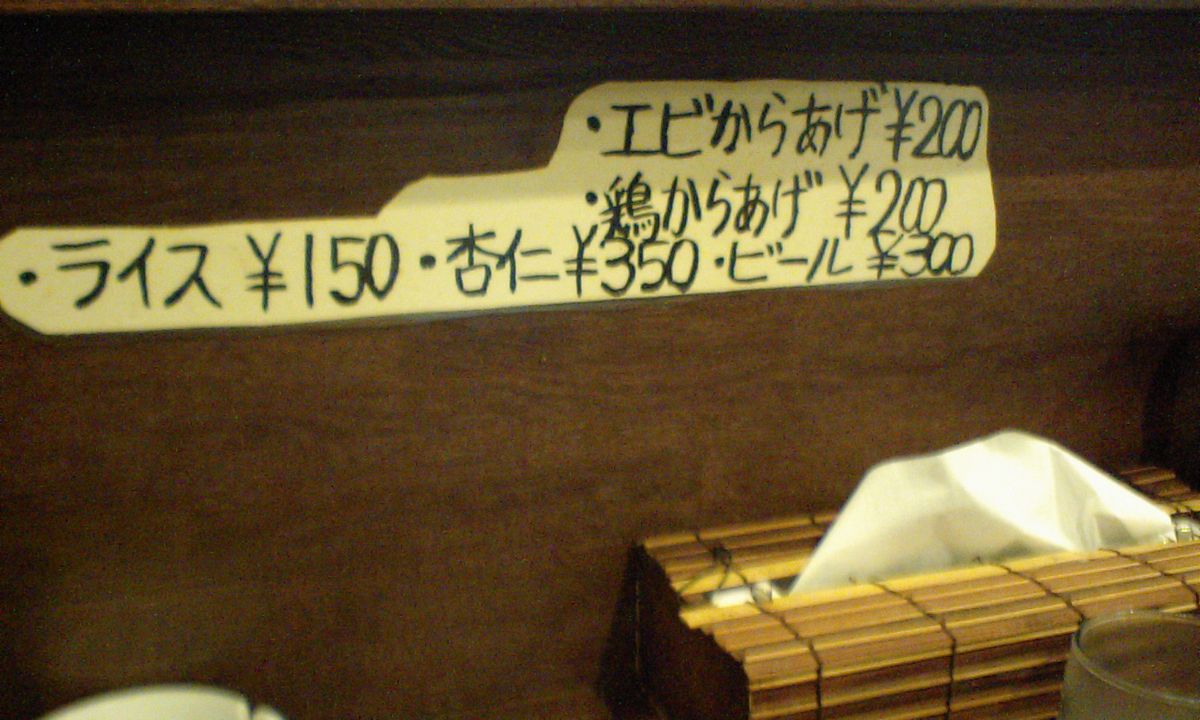 ・エビからあげ ¥200
・鶏からあげ ¥200
・ライス ¥150 ・杏仁 ¥350 ・ビール ¥300